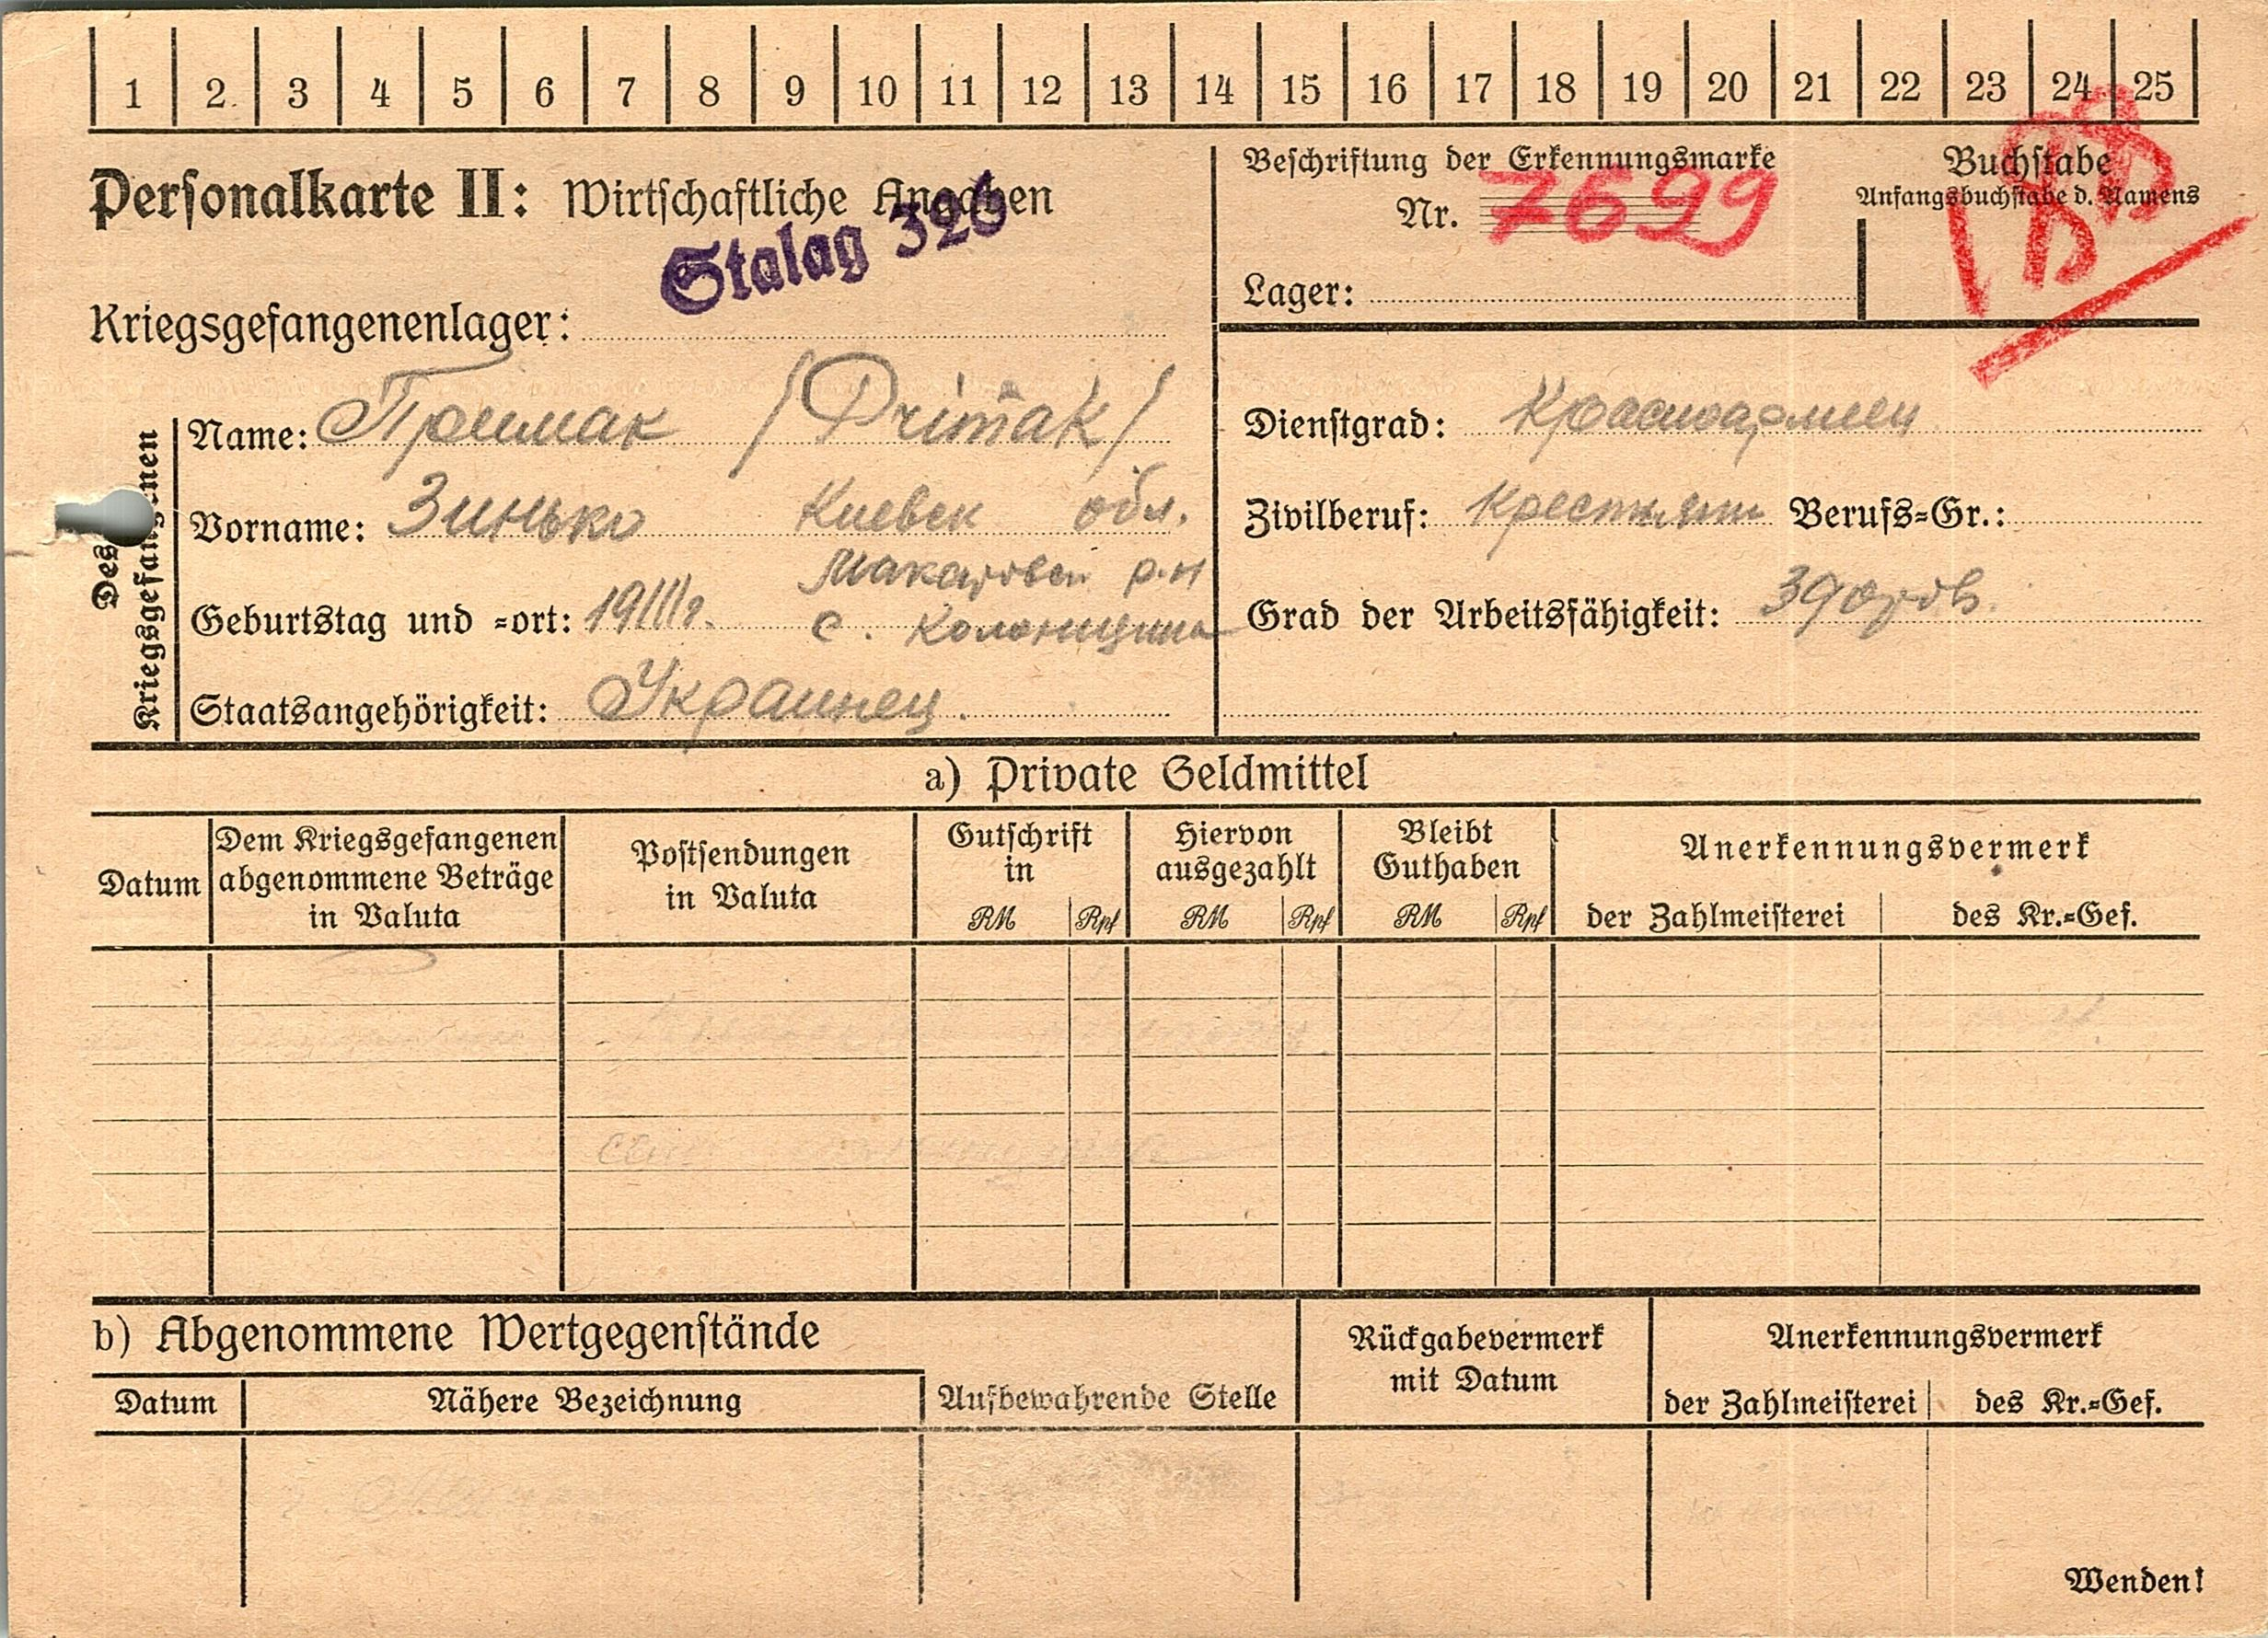 1 2 3 4 5 6 7 8 9 10 11 12 13 14 15 16 17 18 19 20 21 22 23 24 25
Personalkarte II: Wirtschaftliche Angaben
Stalag 326
Kriegsgefangenenlager:
Beschriftung der Erkennungsmarke
Nr. 7699
Lager:
Buchstabe
Anfangsbuchstabe d. Namens
Des Kriegsgefangenen
Name: Примак /Primak/
Vorname: Зинько Киевск обл.
Макаровск р-н
Geburtstag und =ort: 1911г. с. Колонщина
Staatsangehörigkeit: Украинец.
Dienstgrad: Красноармеец
Zivilberuf: крестьянин Berufs=Gr.:
Grad der Arbeitsfähigkeit: здоров
a) Private Geldmittel
Datum
Dem Kriegsgefangenen
abgenommene Beträge
in Valuta
Postsendungen
in Valuta
Gutschrift
in
RM Rpf
Hiervon
ausgezahlt
RM Rpf
Bleibt
Guthaben
RM Rpf
Anerkennungsvermerk
der Zahlmeisterei des Kr.=Gef.
b) Abgenommene Wertgegenstände
Datum Nähere Bezeichnung Aufbewahrende Stelle
Rückgabevermerk
mit Datum
Anerkennungsvermerk
der Zahlmeisterei des Kr.=Gef.
Wenden!